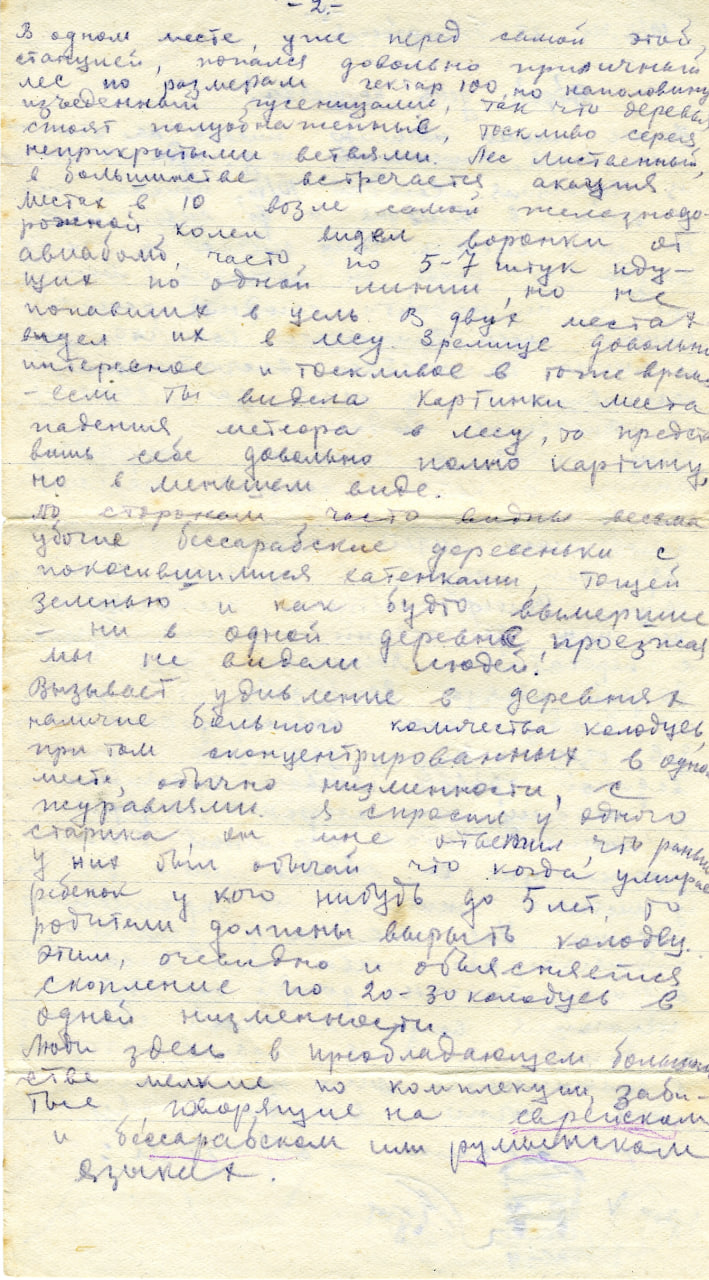 -2.-
В одном месте, уже перед самой этой,
станцией, попался довольно приличный
лес по размерам гектар 100, но наполовину
изъеденный гусеницами, так что деревья
стоят полуобнаженные, тоскливо серея
неприкрытыми ветвями. Лес лиственный,
в большинстве встречается акация.
Местах в 10 возле самой железнодо-
рожной колеи видел воронки от
авиабомб, часто, по 5-7 штук иду-
щих по одной линии, но не
попавших в цель. В двух местах
видел их в лесу. Зрелище довольно
интересное и тоскливое в тоже время
- если ты видела картинки места
падения метеора в лесу, то предста
вишь себе довольно полно картину,
но в меньшем виде.
По сторонам часто видны весьма
убогие бессарабские деревеньки с
покосившимися хатенками, тощей
зеленью и как будто вымершие
- ни в одной деревне, проезжая
мы не видели людей!
Вызывает удивление в деревнях
наличие большого количества колодцев,
при том сконцентрированных в одном
месте, обычно низменности, с
журавлями. Я спросил у одного
старика, он мне ответил, что раньше
у них был обычай что когда умирает
ребенок у кого нибудь до 5 лет, то
родители должны вырыть колодец.
Этим, очевидно и объясняется
скопление по 20-30 колодцев в
одной низменности.
Люди здесь в преобладающем большин
стве мелкие по комплекции, заби-
тые, говорящие на еврейском
и бессарабском или румынском
языках.